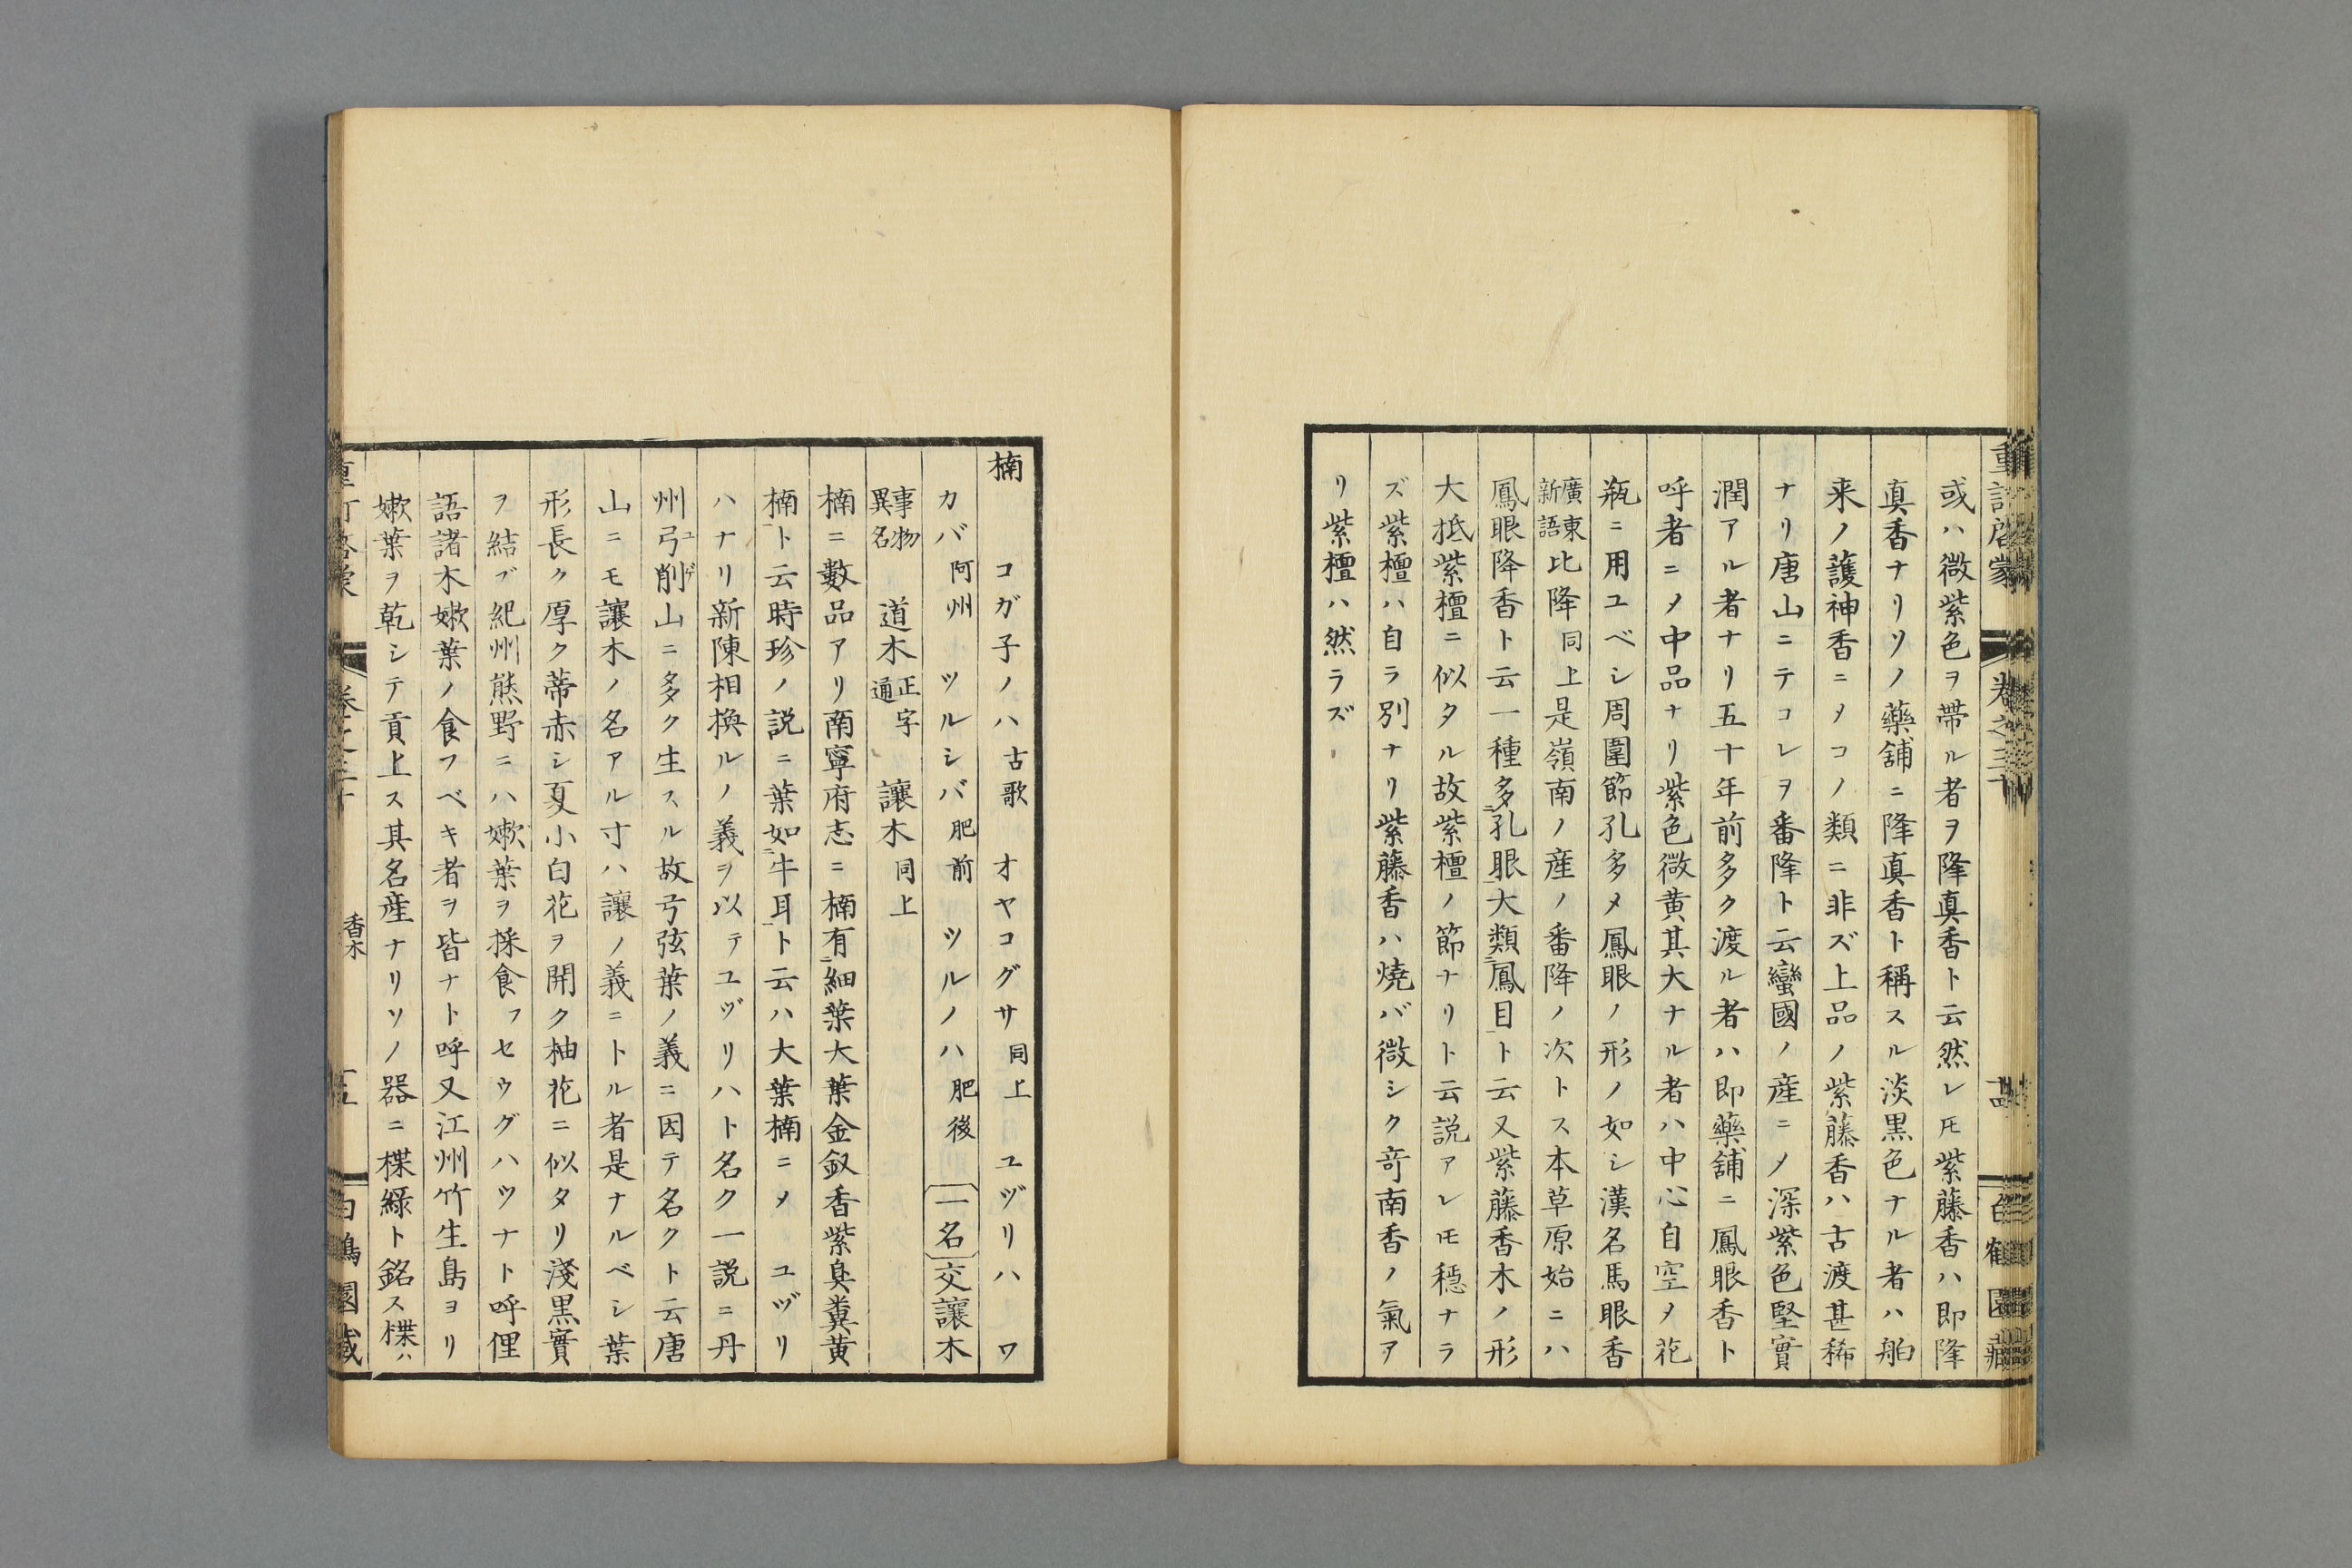 或ハ微紫色ヲ帶ル者ヲ降真香ト云然レ𪜈紫藤香ハ即降
真香ナリソノ藥舗ニ降真香ト稱スル淡黒色ナル者ハ舶
来ノ護神香ニ乄コノ類ニ非ズ上品ノ紫藤香ハ古渡甚稀
ナリ唐山ニテコレヲ番降ト云蠻國ノ産ニ乄深紫色堅實
潤アル者ナリ五十年前多ク渡ル者ハ即藥舗ニ鳳眼香ト
呼者ニ乄中品ナリ紫色微黄其大ナル者ハ中心自空乄花
瓶ニ用ユベシ周圍節孔多メ鳳眼ノ形ノ如シ漢名馬眼香
廣東新語比降同上是嶺南ノ産ノ番降ノ次トス本草原始ニハ
鳳眼降香ト云一種多孔眼大類鳳目ト云又紫藤香木ノ形
大抵紫檀ニ似タル故紫檀ノ節ナリト云説アレ𪜈穏ナラ
ズ紫檀ハ自ラ別ナリ紫藤香ハ燒バ微シク竒南香ノ氣ア
リ紫檀ハ然ラズ
楠 コガ子ノハ古歌 オヤコグサ同上 ユヅリハ ワ
カバ阿州 ツルシバ肥前 ツルノハ肥後 一名交讓木
事物異名 道木正字通 讓木同上
楠ニ數品アリ南寧府志ニ楠有細葉大葉金釵香紫臭糞黄
楠ト云時珍ノ説ニ葉如牛耳ト云ハ大葉楠ニ乄ユヅリ
ハナリ新陳相換ルノ義ヲ以テユヅリハト名ク一説ニ丹
州弓削山ニ多ク生スル故弓弦葉ノ義ニ因テ名クト云唐
山ニモ讓木ノ名アル寸ハ讓ノ義ニトル者是ナルベシ葉
形長ク厚ク蒂赤シ夏小白花ヲ開ク柚花ニ似タリ淺黒實
ヲ結ブ紀州熊野ニハ嫰葉ヲ採食フセウグハツナト呼俚
語諸木嫰葉ノ食フベキ者ヲ皆ナト呼又江州竹生島ヨリ
嫰葉ヲ乾シテ貢上ス其名産ナリソノ器ニ楪緑ト銘ス楪ハ
香木